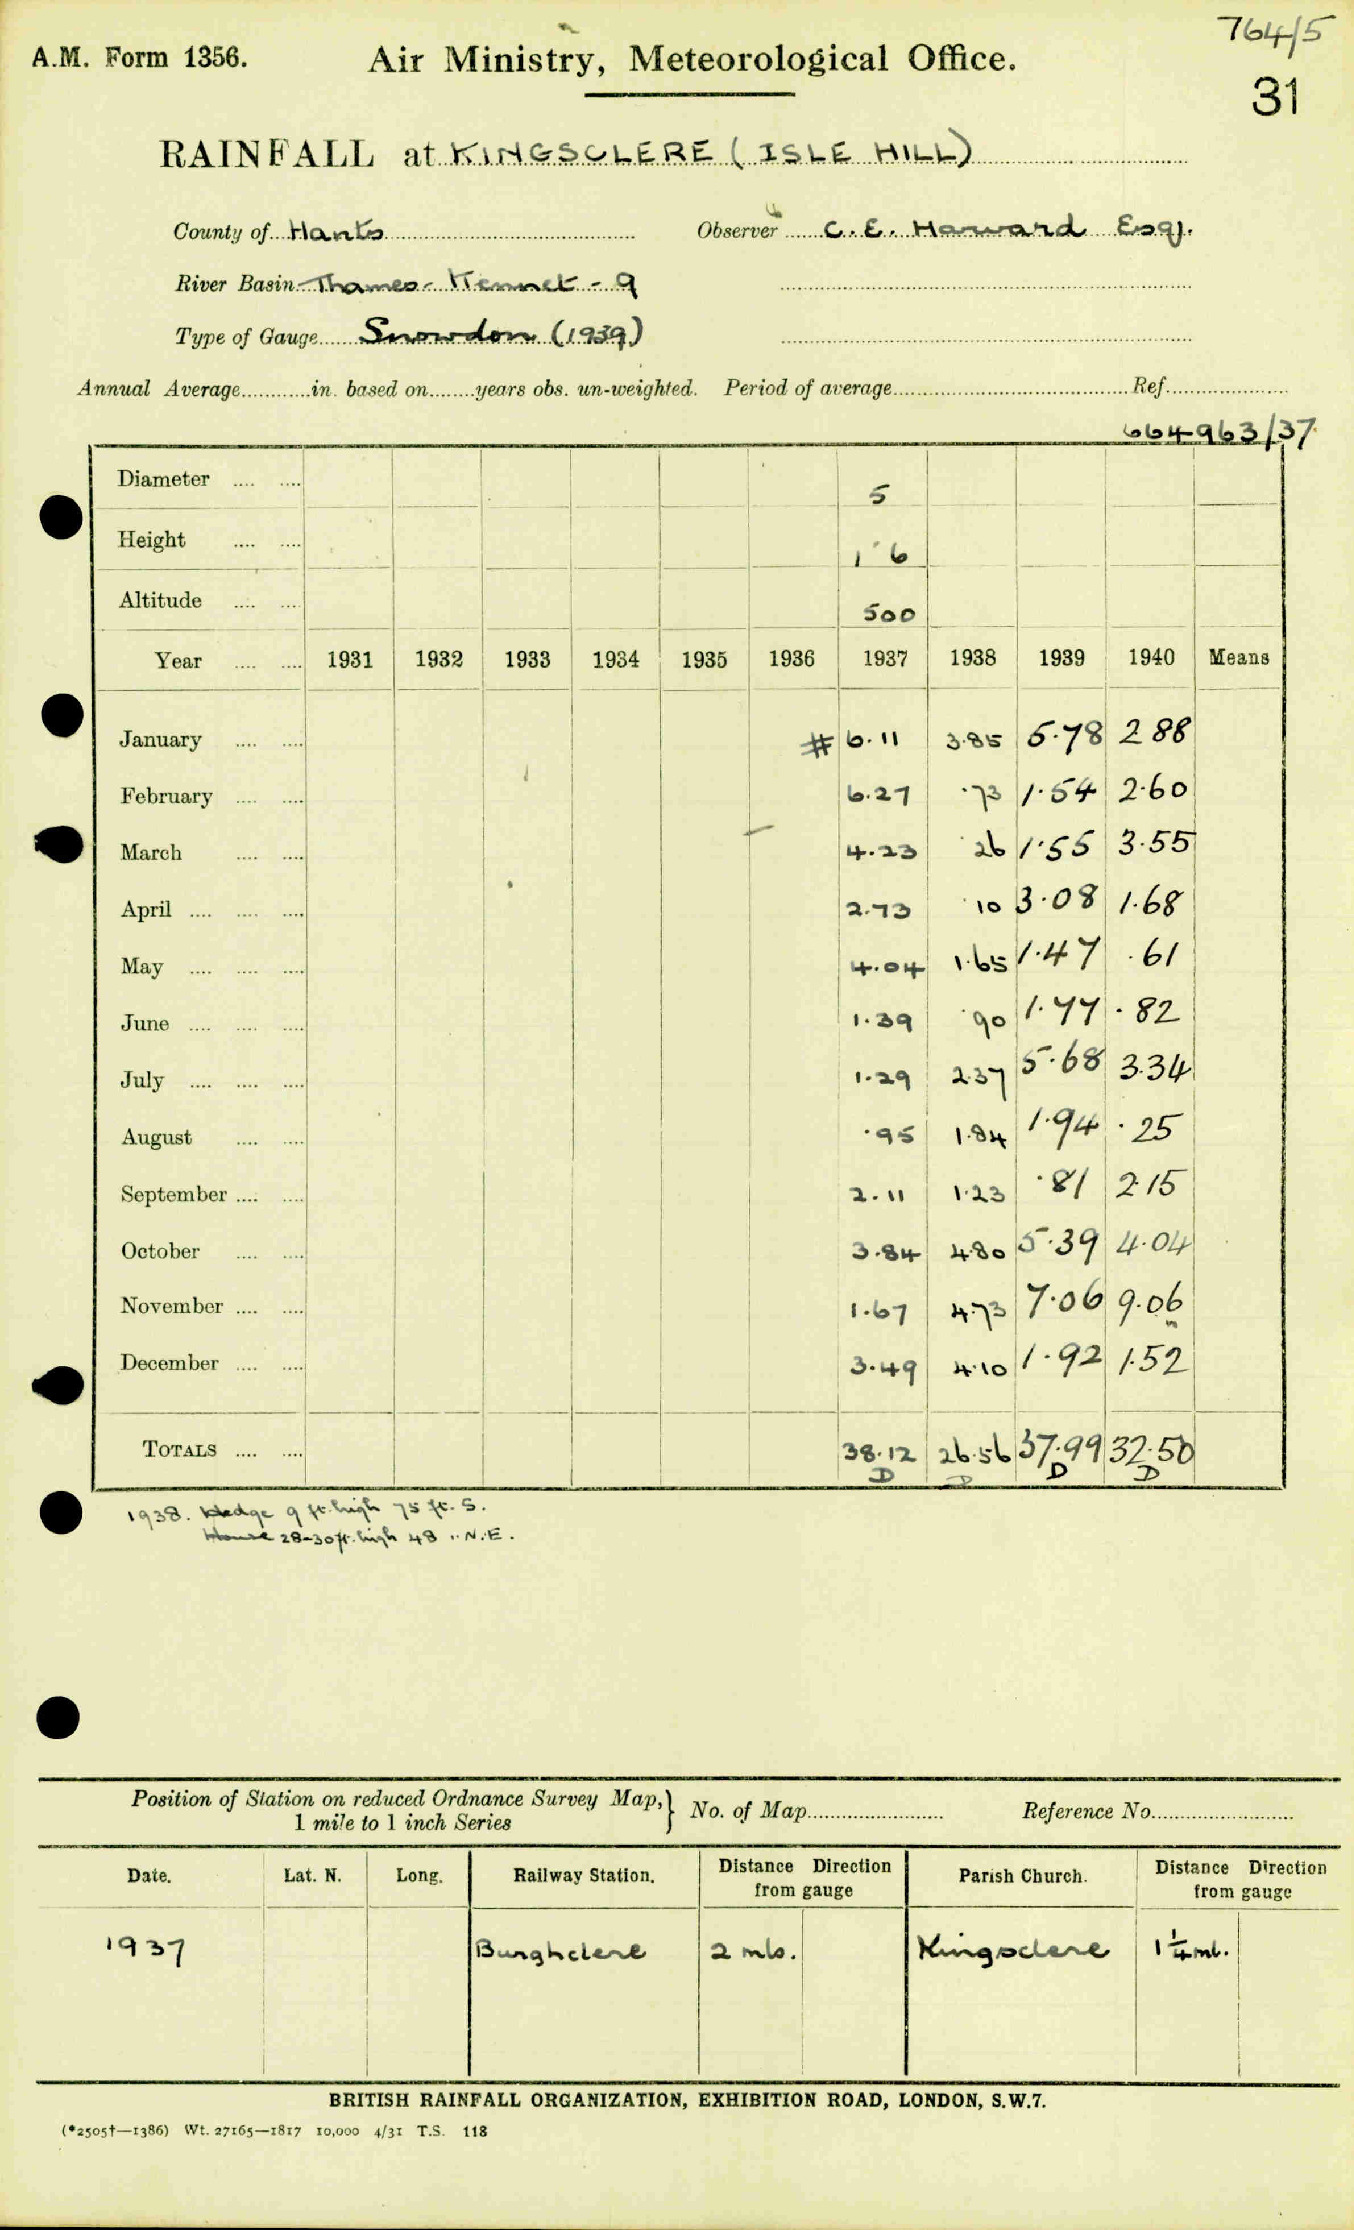 764/5
A.M. Form 1356. Air Ministry, Meteorological Office.
31
RAINFALL at KINGSCLERE (ISLE HILL)
County of Hants Observer C.E. Harward Esq.
River Basin Thames - Kennet - 9
Type of Gauge Snowdon (1939)
Annual Average............in. based on........years obs. un-weighted. Period of average........Ref........
664963/37
Diameter .... .... 5
Height .... .... 1' 6
Altitude .... .... 500
Year .... .... 1931 1932 1933 1934 1935 1936 1937 1938 1939 1940 Means
January .... .... # 6.11 3.85 5.78 2.88
February .... .... 6.27 .73 1.54 2.60
March .... .... 4.23 .26 1.55 3.55
April .... .... .... 2.73 .10 3.08 1.68
May .... .... .... 4.04 1.65 1.47 .61
June .... .... .... 1.39 .90 1.77 .82
July .... .... .... 1.29 2.37 5.68 3.34
August .... .... .95 1.84 1.94 .25
September .... .... 2.11 1.23 .81 2.15
October .... .... 3.84 4.80 5.39 4.04
November .... .... 1.67 4.73 7.06 9.06
December .... .... 3.49 4.10 1.92 1.52
TOTALS .... .... 38.12 26.56 37.99 32.50
D D D D
1938. Hedge 9 ft. high 75 ft. S.
House 28-30 ft. high 48 " N.E.
Position of Station on reduced Ordnance Survey Map, 1 mile to 1 inch Series } No. of Map........ Reference No........
Date. Lat. N. Long. Railway Station. Distance Direction from gauge Parish Church. Distance Direction from gauge
1937 Burghclere 2 mls. Kingsclere 1¼ ml.
BRITISH RAINFALL ORGANIZATION, EXHIBITION ROAD, LONDON, S.W.7.
(*2505†—1386) Wt. 27165—1817 10,000 4/31 T.S. 118